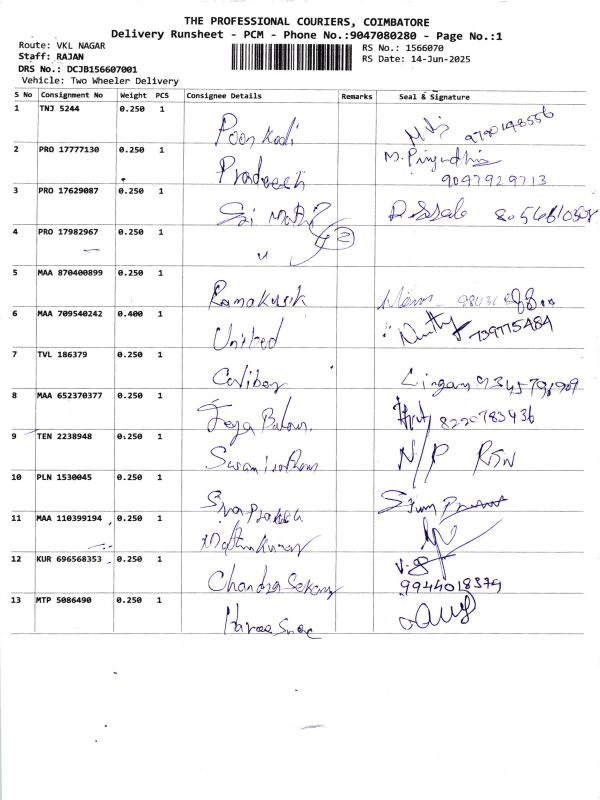 THE PROFESSIONAL COURIERS, COIMBATORE
Delivery Runsheet - PCM - Phone No.:9047080280 - Page No.:1
Route: VKL NAGAR
Staff: RAJAN
DRS No.: DCJB156607001
Vehicle: Two Wheeler Delivery
RS No.: 1566070
RS Date: 14-Jun-2025
S No Consignment No Weight PCS Consignee Details Remarks Seal & Signature
1 TNJ 5244 0.250 1 Poon Kodi
2 PRO 17777130 0.250 1 Pradeesh 9047929713
3 PRO 17629087 0.250 1 Sai
4 PRO 17982967 0.250 1 〃 2
5 MAA 870400899 0.250 1
6 MAA 709540242 0.400 1 United 739775484
7 TVL 186379 0.250 1 Caliber Lingam
8 MAA 652370377 0.250 1 Jeya 8220783936
9 TEN 2238948 0.250 1 N/P RTN
10 PLN 1530045 0.250 1 Siva Prakash
11 MAA 110399194 0.250 1
12 KUR 696568353 0.250 1 Chandra Sekar 9944018379
13 MTP 5086490 0.250 1